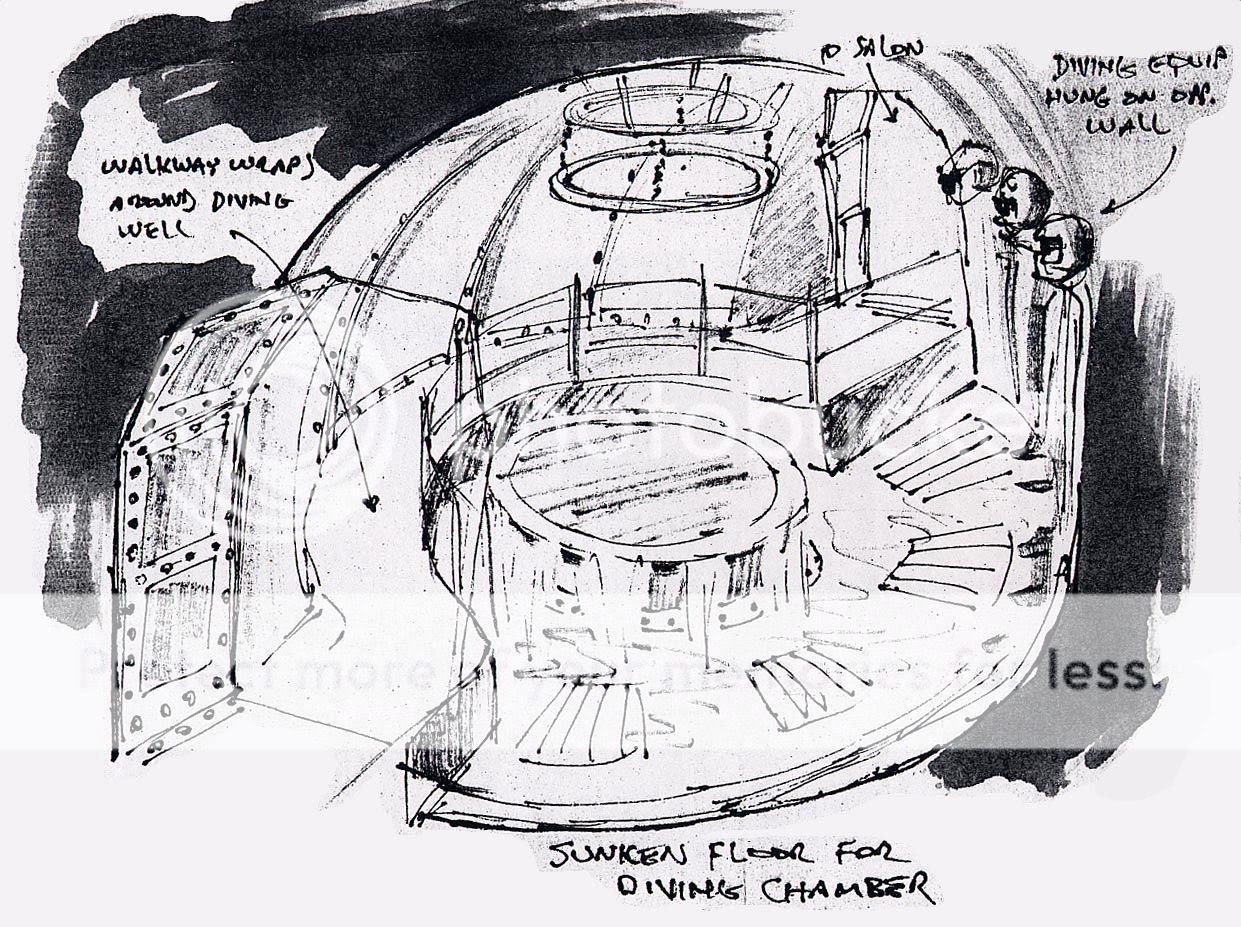 TO SALON
DIVING EQUIP
HUNG ON OPP.
WALL
WALKWAY WRAPS
AROUND DIVING
WELL
photobucket
Protect more of your memories for less.
SUNKEN FLOOR FOR
DIVING CHAMBER